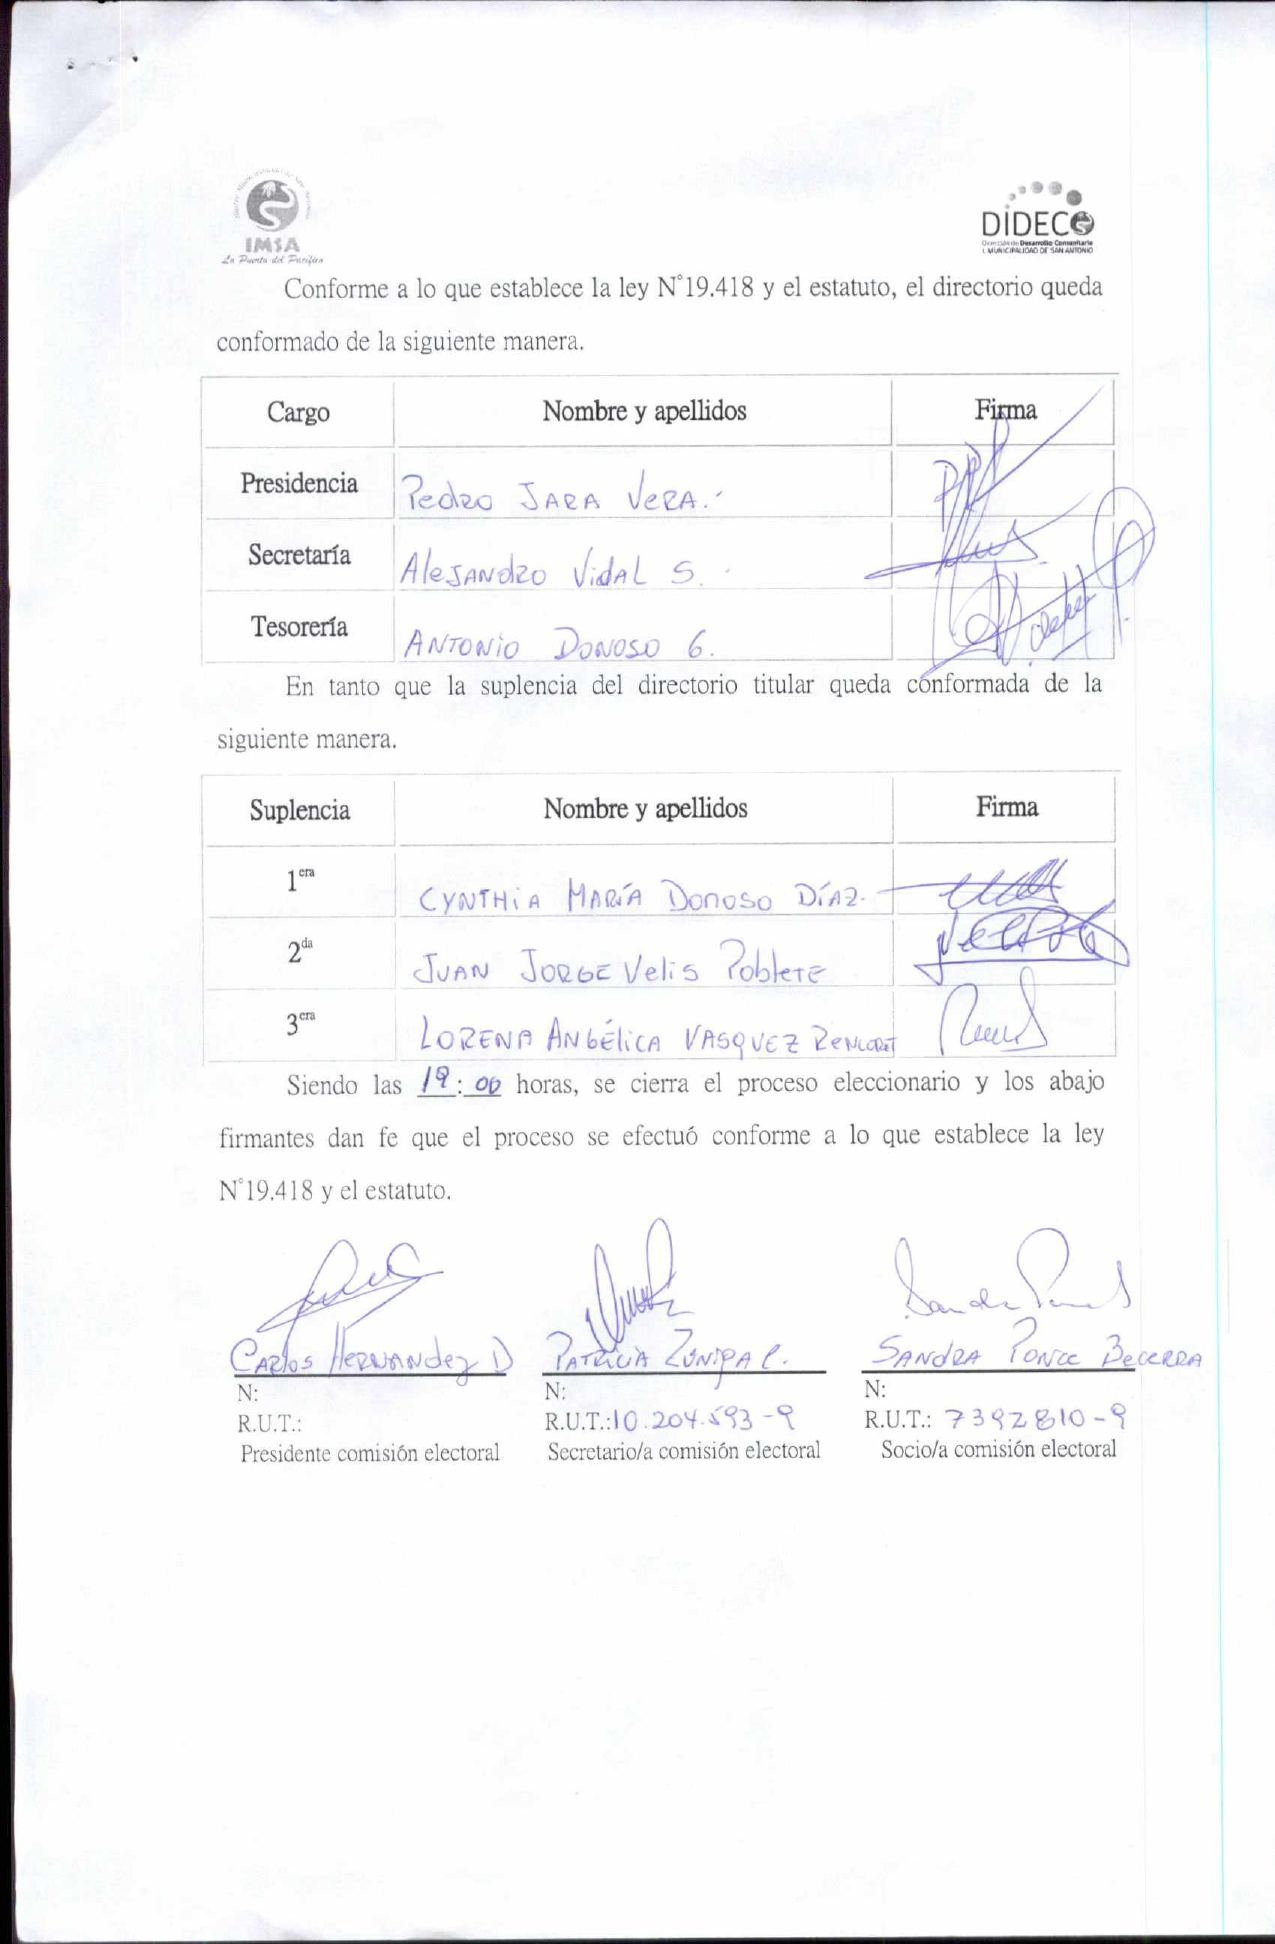 IMSA
La Puerta del Pacífico
DIDECO
Dirección de Desarrollo Comunitario
I. MUNICIPALIDAD DE SAN ANTONIO
Conforme a lo que establece la ley N°19.418 y el estatuto, el directorio queda
conformado de la siguiente manera.
Cargo Nombre y apellidos Firma
Presidencia Pedro JARA VERA.
Secretaría AleJANdRo VidAL S.
Tesorería ANTONiO DONOSO G.
En tanto que la suplencia del directorio titular queda conformada de la
siguiente manera.
Suplencia Nombre y apellidos Firma
1era CYNTHiA MARÍA Donoso DÍAZ.
2da JUAN JORGE Velis Poblete
3era LORENA ANGÉLiCA VASQUEZ RENCORET
Siendo las 19:00 horas, se cierra el proceso eleccionario y los abajo
firmantes dan fe que el proceso se efectuó conforme a lo que establece la ley
N°19.418 y el estatuto.
Sandra Ponce
CARlos HERNANdez D PATRICIA ZUÑIGA C. SANDRA PONCE BECERRA
N: N: N:
R.U.T.: R.U.T.:10.204.593-9 R.U.T.: 7392810-9
Presidente comisión electoral Secretario/a comisión electoral Socio/a comisión electoral